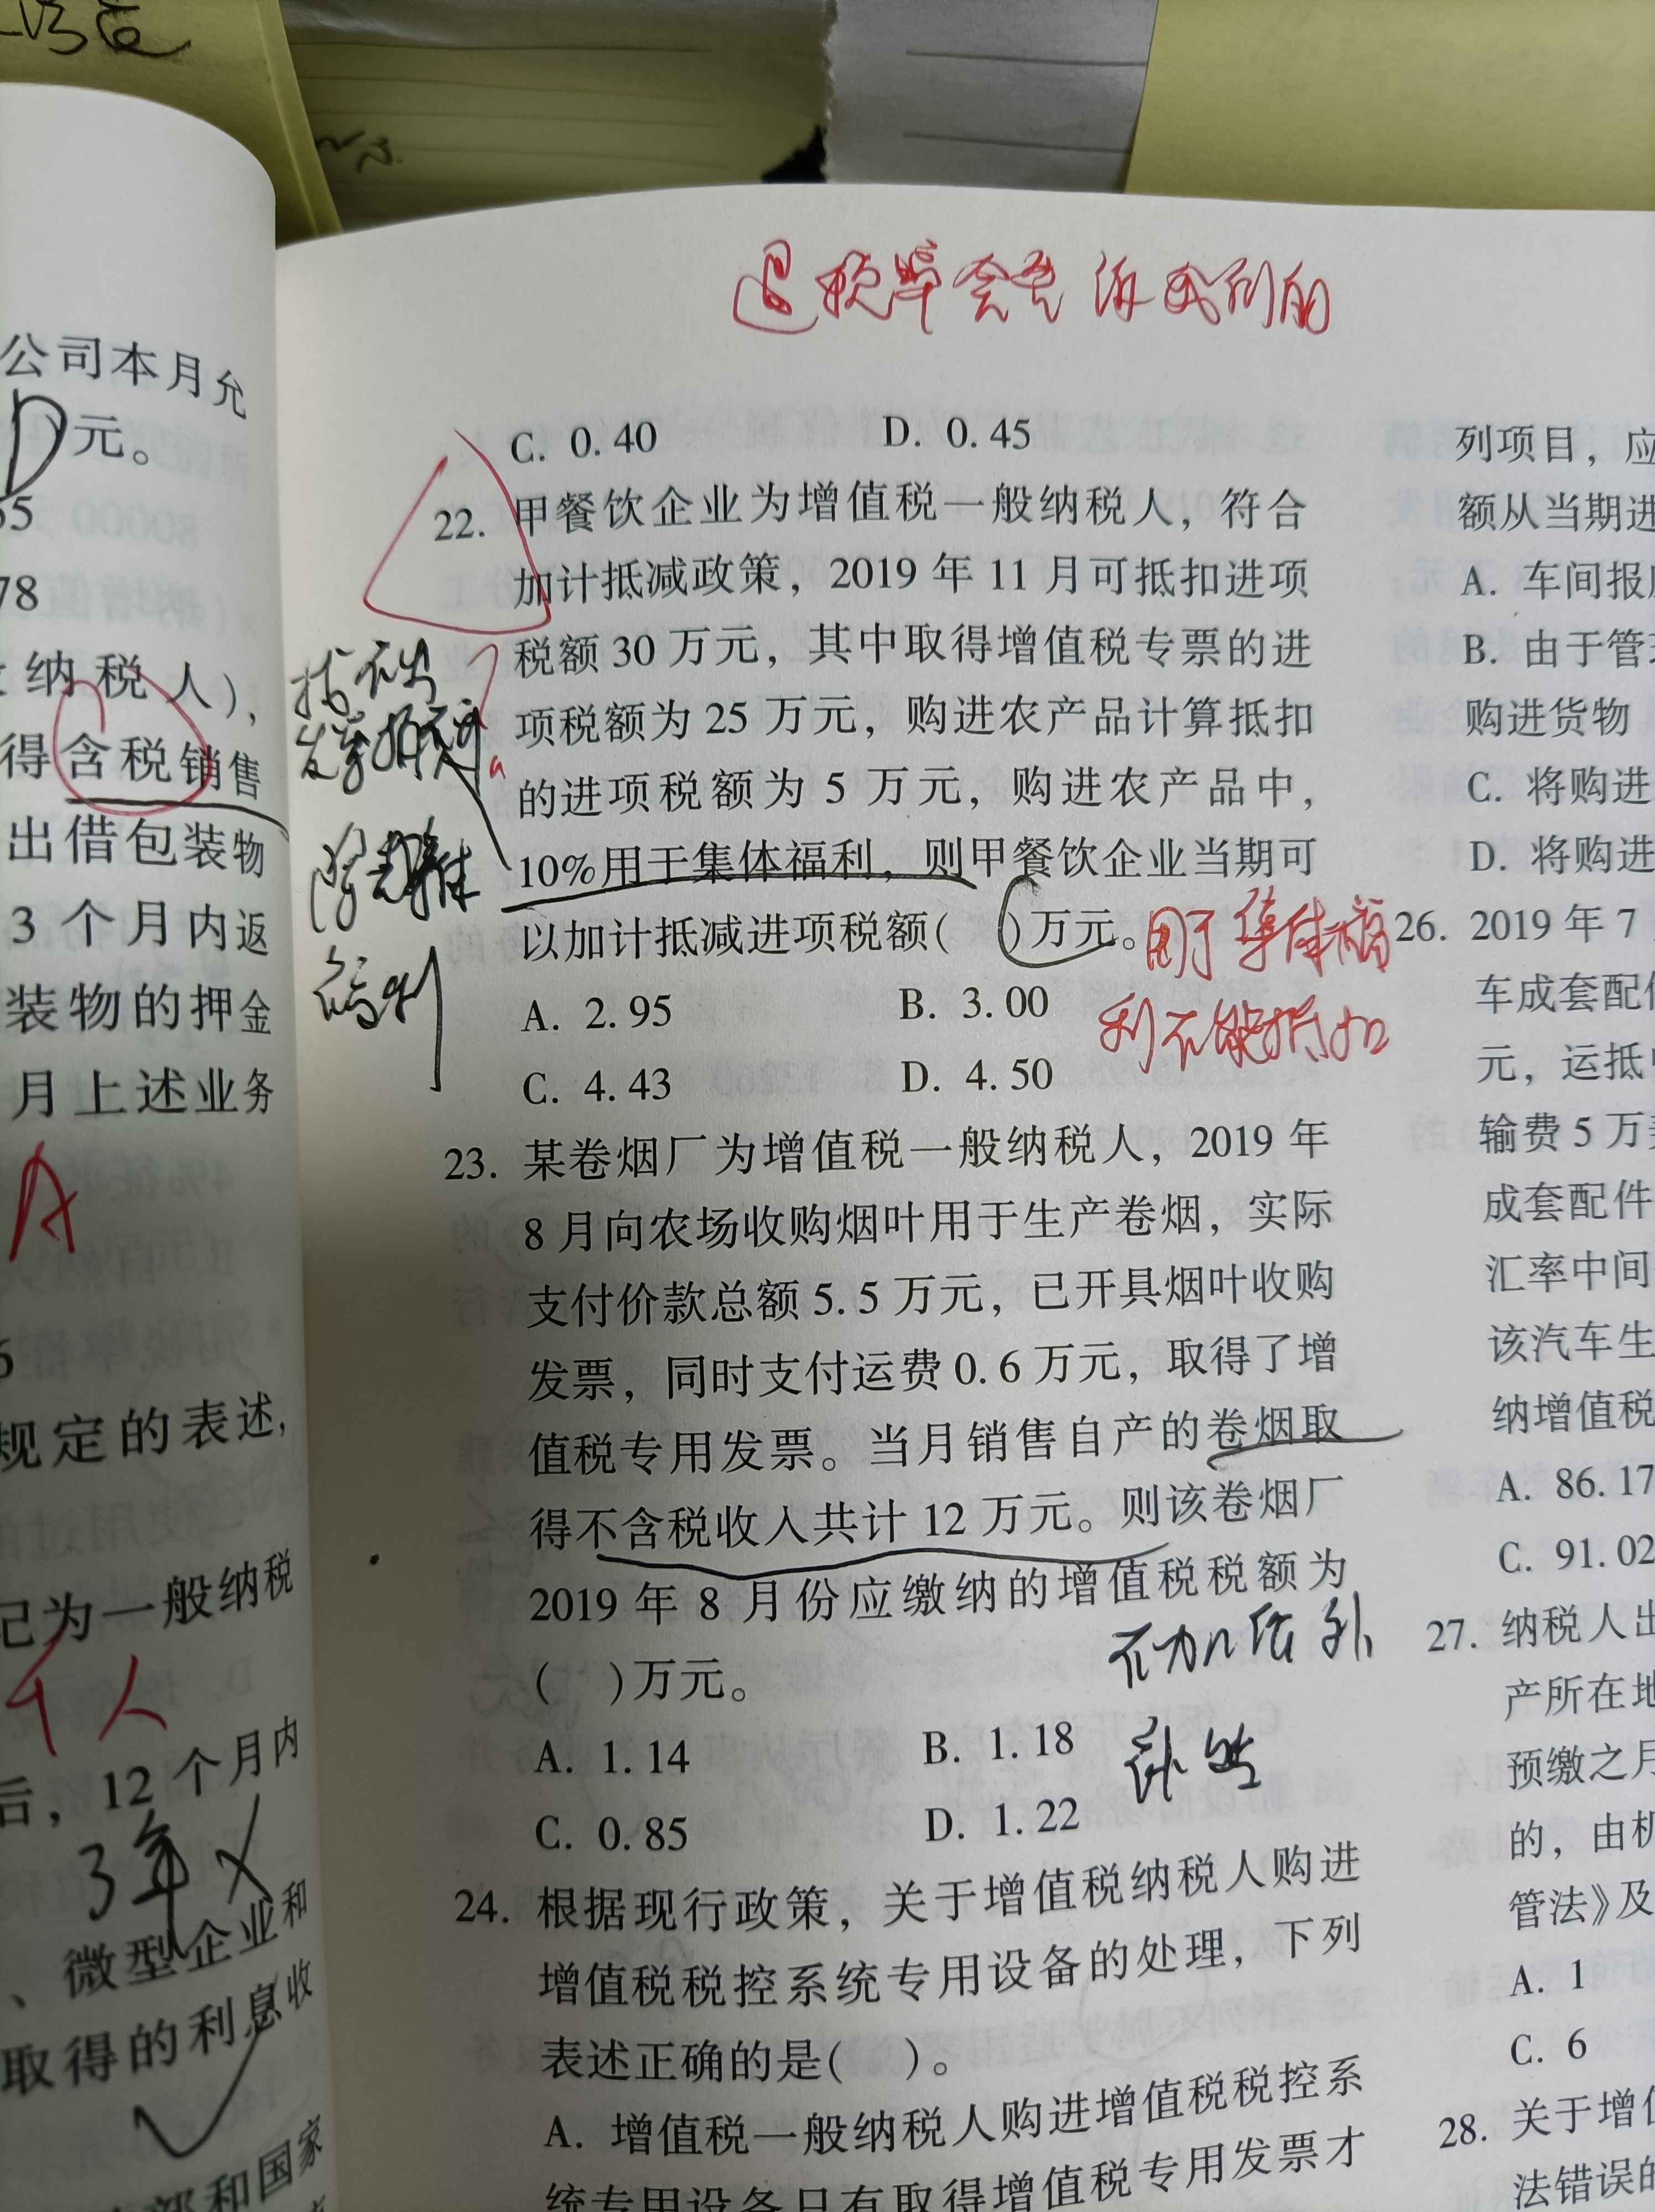 公司本月允
D 元。
55
78
纳税人），
得含税销售
出借包装物
3 个月内返
装物的押金
月上述业务
A
6
规定的表述，
记为一般纳税
个人
后，12 个月内
3年 ×
、微型企业和
取得的利息收
部和国家
退税率会告诉我们的
C. 0.40 D. 0.45
22. 甲餐饮企业为增值税一般纳税人，符合
加计抵减政策，2019 年 11 月可抵扣进项
税额 30 万元，其中取得增值税专票的进
项税额为 25 万元，购进农产品计算抵扣
的进项税额为 5 万元，购进农产品中，
10%用于集体福利，则甲餐饮企业当期可
以加计抵减进项税额( )万元。
A. 2.95 B. 3.00
C. 4.43 D. 4.50
福利
用于集体福
利不能抵扣
23. 某卷烟厂为增值税一般纳税人，2019 年
8 月向农场收购烟叶用于生产卷烟，实际
支付价款总额 5.5 万元，已开具烟叶收购
发票，同时支付运费 0.6 万元，取得了增
值税专用发票。当月销售自产的卷烟取
得不含税收入共计 12 万元。则该卷烟厂
2019 年 8 月份应缴纳的增值税税额为
( )万元。
不加价外
补贴
A. 1.14 B. 1.18
C. 0.85 D. 1.22
24. 根据现行政策，关于增值税纳税人购进
增值税税控系统专用设备的处理，下列
表述正确的是( )。
A. 增值税一般纳税人购进增值税税控系
统专用设备只有取得增值税专用发票才
列项目，应
额从当期进
A. 车间报
B. 由于管
购进货物
C. 将购进
D. 将购进
26. 2019 年 7
车成套配
元，运抵
输费 5 万
成套配件
汇率中间
该汽车生
纳增值税
A. 86.17
C. 91.02
27. 纳税人出
产所在地
预缴之月
的，由机
管法》及
A. 1
C. 6
28. 关于增
法错误的